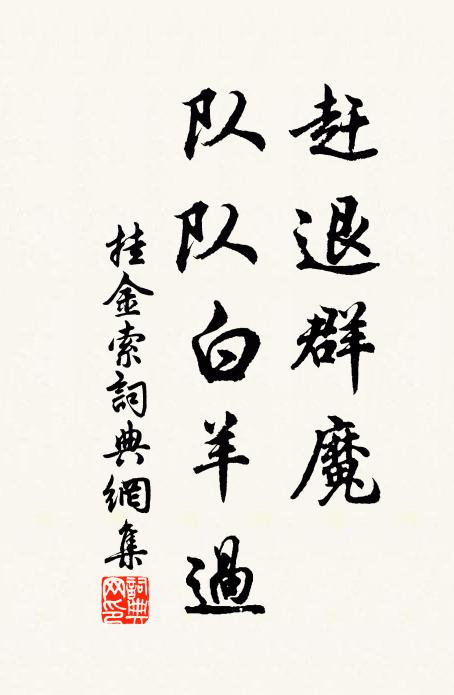 赶退群魔
队队白羊過
挂金索詞典網集
詞典
网印